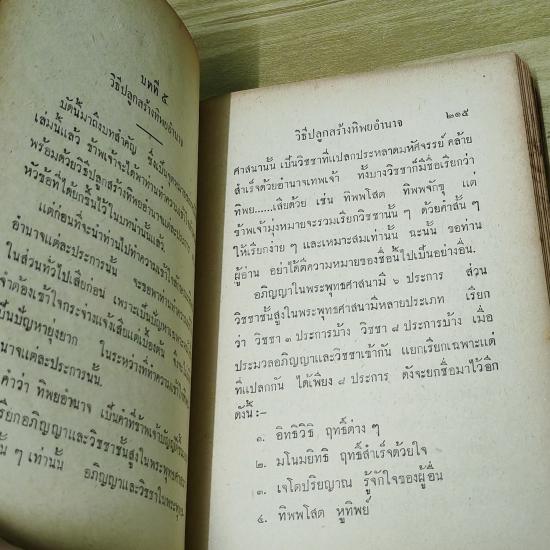 บทที่ ๕
วิธีปลูกสร้างทิพยอำนาจ
บัดนี้มาถึงบทสำคัญ ซึ่งเป็น
เล่มนี้แล้ว ข้าพเจ้าจะได้พาท่านทำความเข้าใจ
พร้อมด้วยวิธีปลูกสร้างทิพยอำนาจแต่ละประการ
หัวข้อที่ได้ยกขึ้นไว้ในบทหน้านั้นแล้ว
แต่ก่อนที่จะนำท่านไปทำความเข้าใจ
อำนาจแต่ละประการนั้น จะขอพาท่านทำความ
ในส่วนทั่วไปเสียก่อน เพราะเป็นปัญหา
จำต้องเข้าใจกระจ่างแจ้งเสียแต่เบื้องต้น
เป็นปัญหายุ่งยาก ในระหว่างที่ทำความเข้าใจ
อำนาจแต่ละประการนั้น.
คำว่า ทิพยอำนาจ เป็นคำที่ข้าพเจ้าบัญญัติขึ้น
เรียกอภิญญาและวิชชาชั้นสูงในพระพุทธศาสนา
นั้น ๆ เท่านั้น อภิญญาและวิชชาในพระพุทธ
วิธีปลูกสร้างทิพยอำนาจ ๒๑๕
ศาสนานั้น เป็นวิชชาที่แปลกประหลาดมหัศจรรย์ คล้าย
สำเร็จด้วยอำนาจเทพเจ้า ทั้งบางวิชชาก็มีชื่อเรียกว่า
ทิพย.....เสียด้วย เช่น ทิพพโสต ทิพพจักขุ แต่
ข้าพเจ้ามุ่งหมายจะรวมเรียกวิชชานั้น ๆ ด้วยคำสั้น ๆ
ให้เรียกง่าย ๆ และเหมาะสมเท่านั้น ฉะนั้น ขอท่าน
ผู้อ่าน อย่าได้ตีความหมายของชื่อนี้ไปเป็นอย่างอื่น.
อภิญญาในพระพุทธศาสนามี ๖ ประการ ส่วน
วิชชาชั้นสูงในพระพุทธศาสนามีหลายประเภท เรียก
ว่า วิชชา ๓ ประการบ้าง วิชชา ๘ ประการบ้าง เมื่อ
ประมวลอภิญญาและวิชชาเข้ากัน แยกเรียกเฉพาะแต่
ที่แปลกกัน ได้เพียง ๘ ประการ ดังจะยกชื่อมาไว้อีก
ดังนี้:-
๑. อิทธิวิธิ ฤทธิ์ต่าง ๆ
๒. มโนมยิทธิ ฤทธิ์สำเร็จด้วยใจ
๓. เจโตปริยญาณ รู้จักใจของผู้อื่น
๔. ทิพพโสต หูทิพย์